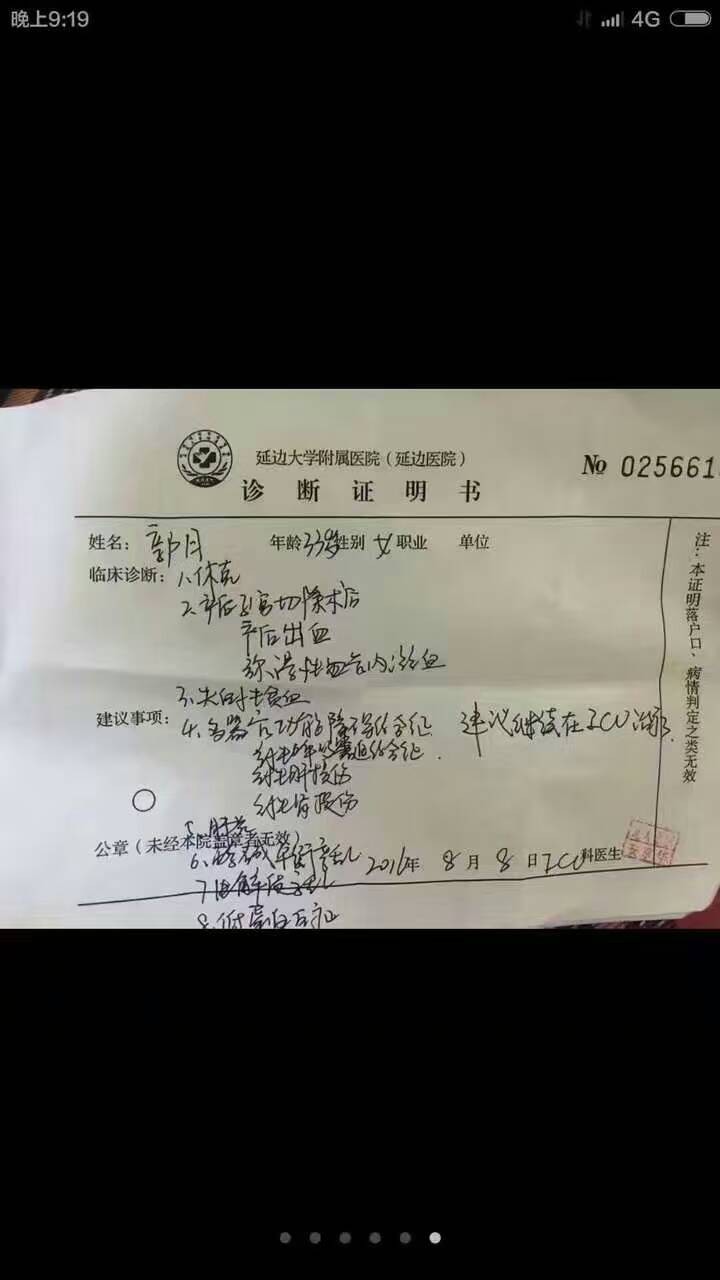 晚上9:19
4G
延边大学附属医院（延边医院）
№ 025661
诊断证明书
姓名：郭月 年龄33岁性别 女 职业 单位
临床诊断：1.休克
2.产后子宫切除术后
产后出血
弥漫性血管内凝血
3.失血性贫血
建议事项：4.多器官功能障碍综合征 建议继续在ICU治疗.
急性呼吸窘迫综合征.
急性肝损伤
急性肾损伤
公章（未经本院盖章者无效）
6.酸碱平衡紊乱 2016年 8月 8日 ICU科医生
7.电解质紊乱
8.低蛋白血症
注：本证明落户口、病情判定之类无效